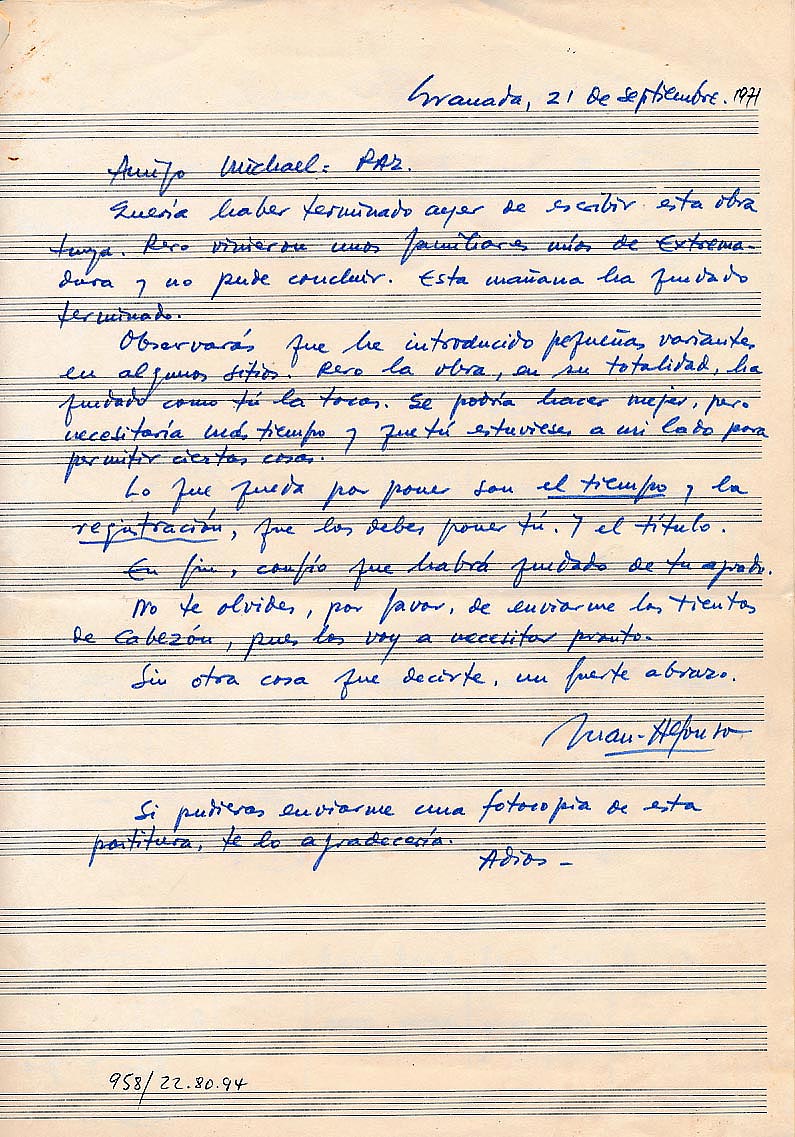 Granada, 21 de septiembre. 1971
Amigo Michael: PAZ.
Quería haber terminado ayer de escribir esta obra
tuya. Pero vinieron unos familiares míos de Extrema-
dura y no pude concluir. Esta mañana ha quedado
terminado.
Observarás que he introducido pequeñas variantes
en algunos sitios. Pero la obra, en su totalidad, ha
quedado como tú la tocas. Se podría hacer mejor, pero
necesitaría más tiempo y que tú estuvieses a mi lado para
permitir ciertas cosas.
Lo que queda por poner son el tiempo y la
registración, que los debes poner tú. Y el título.
En fin, confío que habrá quedado de tu agrado.
No te olvides, por favor, de enviarme los tientos
de Cabezón, pues los voy a necesitar pronto.
Sin otra cosa que decirte, un fuerte abrazo.
Juan-Alfonso
Si pudieras enviarme una fotocopia de esta
partitura, te lo agradecería.
Adios -
958/22.80.94